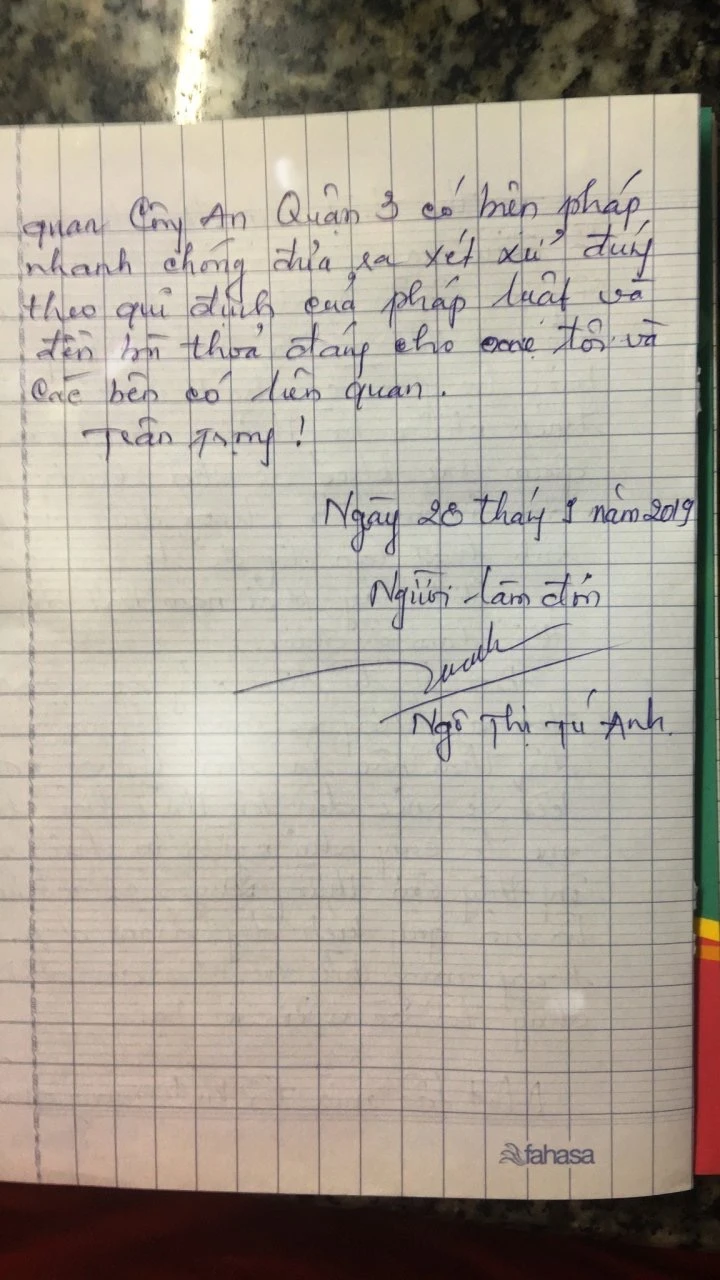 quan Công An Quận 3 có biện pháp
nhanh chóng đưa ra xét xử đúng
theo qui định của pháp luật và
đền bù thoả đáng cho tôi và
các bên có liên quan.
Trân Trọng!
Ngày 28 tháng 9 năm 2019
Người làm đơn
Ngô Thị Tú Anh.
fahasa